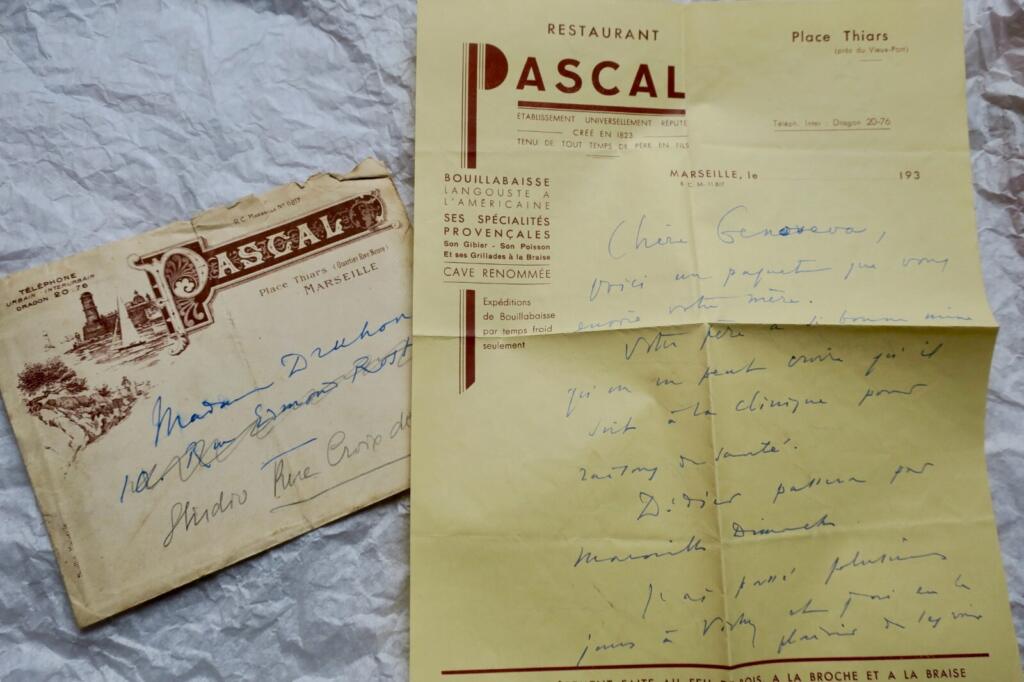 R.C. Marseille No
PASCAL
TÉLÉPHONE
URBAIN INTERURBAIN
DRAGON 20-76
Place Thiars (Quartier Rive Neuve)
MARSEILLE
Madame Druhon
Rue Edmond Rost
Studio Rue Croix de
RESTAURANT
PASCAL
ETABLISSEMENT UNIVERSELLEMENT RÉPUTÉ
CRÉÉ EN 1823
TENU DE TOUT TEMPS DE PÈRE EN FILS
Place Thiars
(près du Vieux-Port)
Téléph. Inter : Dragon 20-76
MARSEILLE, le 193
R. C. M.
BOUILLABAISSE
LANGOUSTE A
L'AMÉRICAINE
SES SPÉCIALITÉS
PROVENÇALES
Son Gibier - Son Poisson
Et ses Grillades à la Braise
CAVE RENOMMÉE
Expéditions
de Bouillabaisse
par temps froid
seulement
Chère Genoveva,
Voici un paquet que vous
envoie votre mère.
Votre père a si bonne mine
qu'on ne peut croire qu'il
soit à la clinique pour
raisons de santé.
Didier passera par
Marseille Dimanche
J'ai passé plusieurs
jours à Vichy et j'ai eu le
plaisir de
FAITE AU FEU DE BOIS, A LA BROCHE ET A LA BRAISE